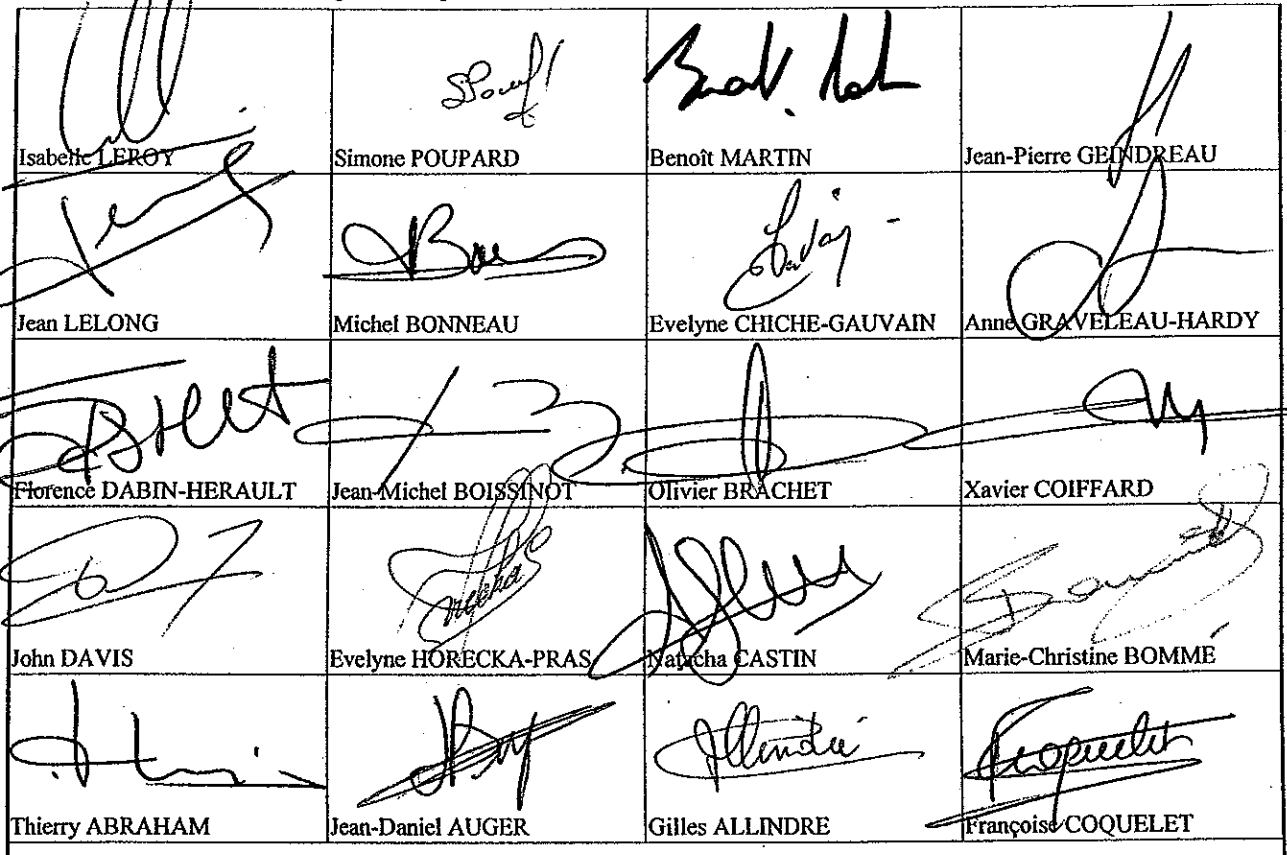 Isabelle LEROY Simone POUPARD Benoît MARTIN Jean-Pierre GEINDREAU
Jean LELONG Michel BONNEAU Evelyne CHICHE-GAUVAIN Anne GRAVELEAU-HARDY
Florence DABIN-HERAULT Jean-Michel BOISSINOT Olivier BRACHET Xavier COIFFARD
John DAVIS Evelyne HORECKA-PRAS Natacha CASTIN Marie-Christine BOMMÉ
Thierry ABRAHAM Jean-Daniel AUGER Gilles ALLINDRE Françoise COQUELET